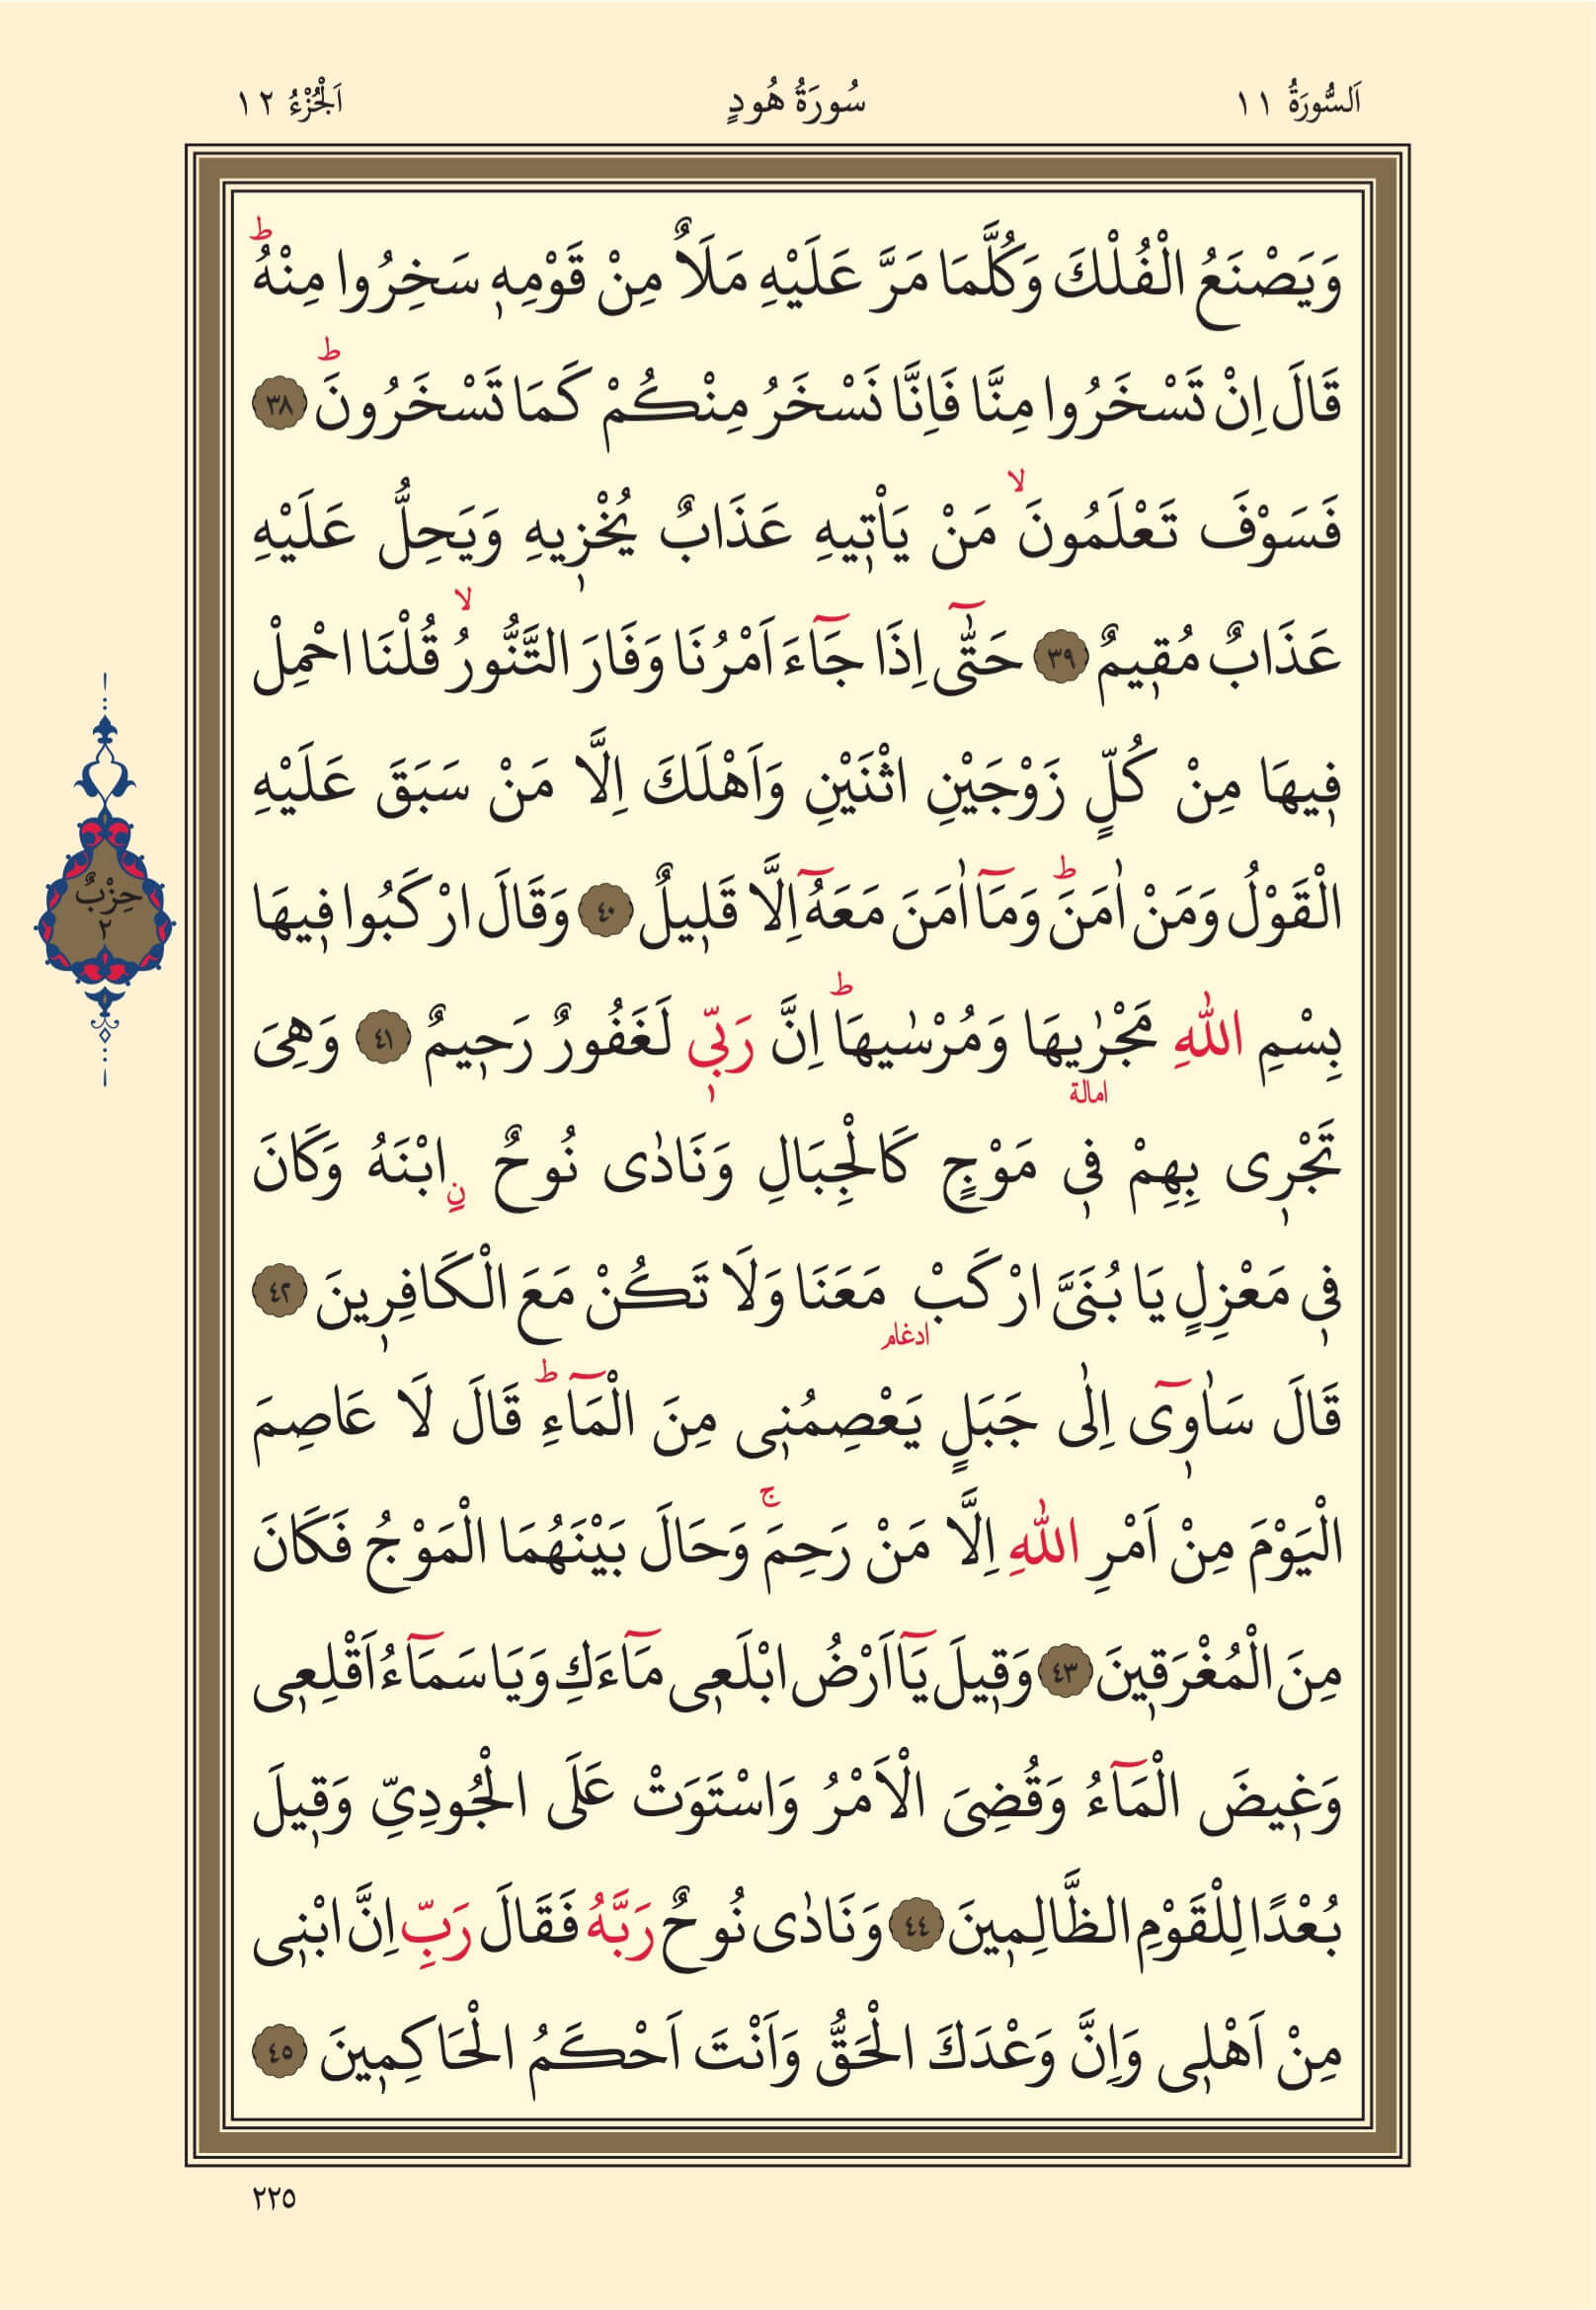 اَلسُّورَةُ ١١ سُورَةُ هُودٍ اَلْجُزْءُ ١٢
وَيَصْنَعُ الْفُلْكَ وَكُلَّمَا مَرَّ عَلَيْهِ مَلَاٌ مِنْ قَوْمِه۪ سَخِرُوا مِنْهُۜ
قَالَ اِنْ تَسْخَرُوا مِنَّا فَاِنَّا نَسْخَرُ مِنْكُمْ كَمَا تَسْخَرُونَۜ ٣٨
فَسَوْفَ تَعْلَمُونَۙ مَنْ يَاْت۪يهِ عَذَابٌ يُخْز۪يهِ وَيَحِلُّ عَلَيْهِ
عَذَابٌ مُق۪يمٌ ٣٩ حَتّٰٓى اِذَا جَٓاءَ اَمْرُنَا وَفَارَ التَّنُّورُۙ قُلْنَا احْمِلْ
ف۪يهَا مِنْ كُلٍّ زَوْجَيْنِ اثْنَيْنِ وَاَهْلَكَ اِلَّا مَنْ سَبَقَ عَلَيْهِ
الْقَوْلُ وَمَنْ اٰمَنَۜ وَمَٓا اٰمَنَ مَعَهُٓ اِلَّا قَل۪يلٌ ٤٠ وَقَالَ ارْكَبُوا ف۪يهَا
بِسْمِ اللّٰهِ مَجْرٰ۪يهَا وَمُرْسٰيهَاۜ اِنَّ رَبّ۪ي لَغَفُورٌ رَح۪يمٌ ٤١ وَهِيَ
امالة
تَجْر۪ي بِهِمْ ف۪ي مَوْجٍ كَالْجِبَالِ وَنَادٰى نُوحٌ نِ ابْنَهُ وَكَانَ
ف۪ي مَعْزِلٍ يَا بُنَيَّ ارْكَبْ مَعَنَا وَلَا تَكُنْ مَعَ الْكَافِر۪ينَ ٤٢
ادغام
قَالَ سَاٰو۪ٓي اِلٰى جَبَلٍ يَعْصِمُن۪ي مِنَ الْمَٓاءِۜ قَالَ لَا عَاصِمَ
الْيَوْمَ مِنْ اَمْرِ اللّٰهِ اِلَّا مَنْ رَحِمَۚ وَحَالَ بَيْنَهُمَا الْمَوْجُ فَكَانَ
مِنَ الْمُغْرَق۪ينَ ٤٣ وَق۪يلَ يَٓا اَرْضُ ابْلَع۪ي مَٓاءَكِ وَيَا سَمَٓاءُ اَقْلِع۪ي
وَغ۪يضَ الْمَٓاءُ وَقُضِيَ الْاَمْرُ وَاسْتَوَتْ عَلَى الْجُودِيِّ وَق۪يلَ
بُعْدًا لِلْقَوْمِ الظَّالِم۪ينَ ٤٤ وَنَادٰى نُوحٌ رَبَّهُ فَقَالَ رَبِّ اِنَّ ابْن۪ي
مِنْ اَهْل۪ي وَاِنَّ وَعْدَكَ الْحَقُّ وَاَنْتَ اَحْكَمُ الْحَاكِم۪ينَ ٤٥
حِزْبٌ
٢
٢٢٥